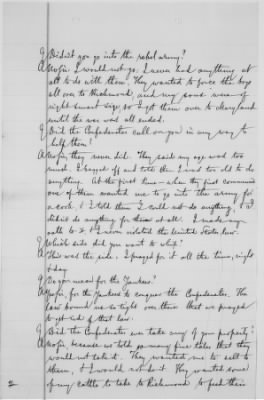 Q Didn't you go into the rebel army?
A No sir I would not go. I never had anything at
all to do with them. They wanted to force the boys
all over to Richmond, and my sons were of
right smart size, so I kept them over to Maryland
until the war was all ended.
Q Did the Confederates call on you in any way to
help them?
A No sir, they never did. They said my age was too
much. I begged off and told them I was too old to do
anything. At the first time when the first commenced
one of them wanted me to go into the army for
a cook & I told them I could not do anything, & I
didn't do anything for them at all. I made my
oath to it & I never violated the United States law.
Q Which side did you want to whip?
A This was the side. I prayed for it all the time, night
& day.
Q Do you mean for the Yankees?
A Yes sir, for the Yankees to conquer the Confederates. The
law bound us so tight over there that we prayed
to get rid of that law.
Q Did the Confederates ever take any of your property?
A No sir, because we told so many fine tales that they
would not take it. They wanted me to sell to
them, & I would not do it. They wanted some
of my cattle to take to Richmond to feed their